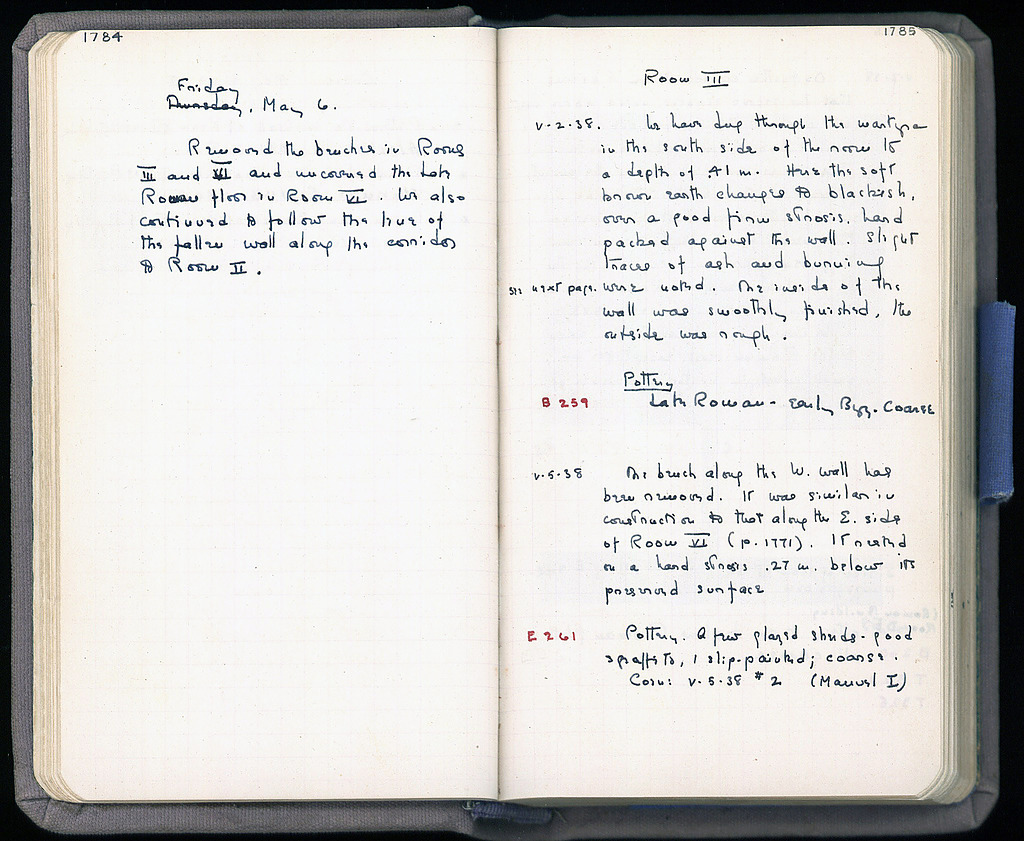 1784
Friday
Thursday, May 6.
Removed the benches in Rooms
III and VI and uncovered the Late
Roman floor in Room VI. We also
continued to follow the line of
the fallen wall along the corridor
to Room II.
1785
Room III
V-2-38. We have dug through the
in the south side of the room to
a depth of .41 m. Here the soft
brown earth changed to blackish,
over a good firm strosis, hard
packed against the wall. Slight
traces of ash and burning
see next page. were noted. The inside of the
wall was smoothly finished, the
outside was rough.
Pottery
B 259 Late Roman - Early Byz. Coarse
V-5-38 The bench along the W. wall has
been removed. It was similar in
construction to that along the E. side
of Room VI (p. 1771). It rested
on a hard strosis .27 m. below its
preserved surface
E 261 Pottery. A few glazed sherds - good
sgraffito, 1 slip-painted; coarse.
Coin: V-5-38 #2 (Manuel I)